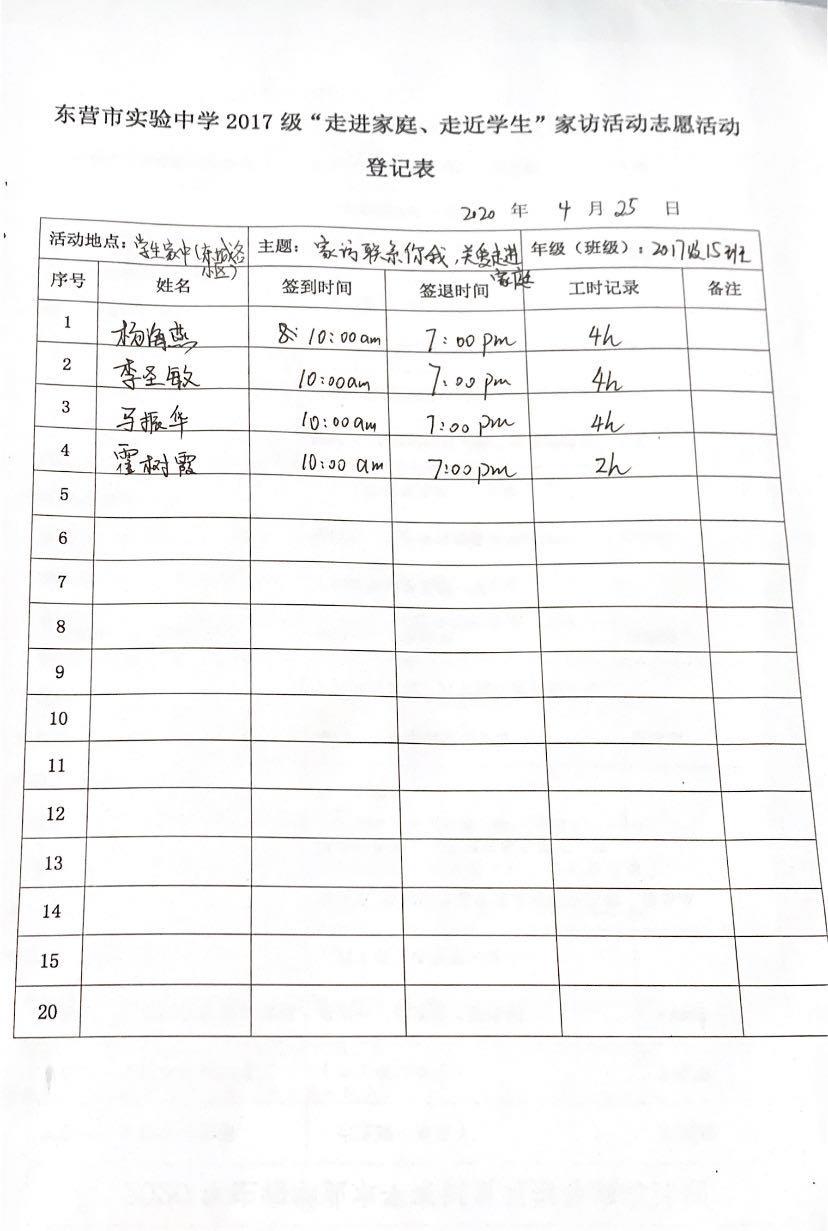 东营市实验中学 2017 级“走进家庭、走近学生”家访活动志愿活动
登记表
2020 年 4 月 25 日
活动地点：学生家中(东城各小区) 主题：家访联系你我,关爱走进家庭 年级（班级）：2017级15班
序号 姓名 签到时间 签退时间 工时记录 备注
1 杨海燕 10:00am 7:00pm 4h
2 李圣敏 10:00am 7:00pm 4h
3 马振华 10:00am 7:00pm 4h
4 霍树霞 10:00 am 7:00pm 2h
5
6
7
8
9
10
11
12
13
14
15
20